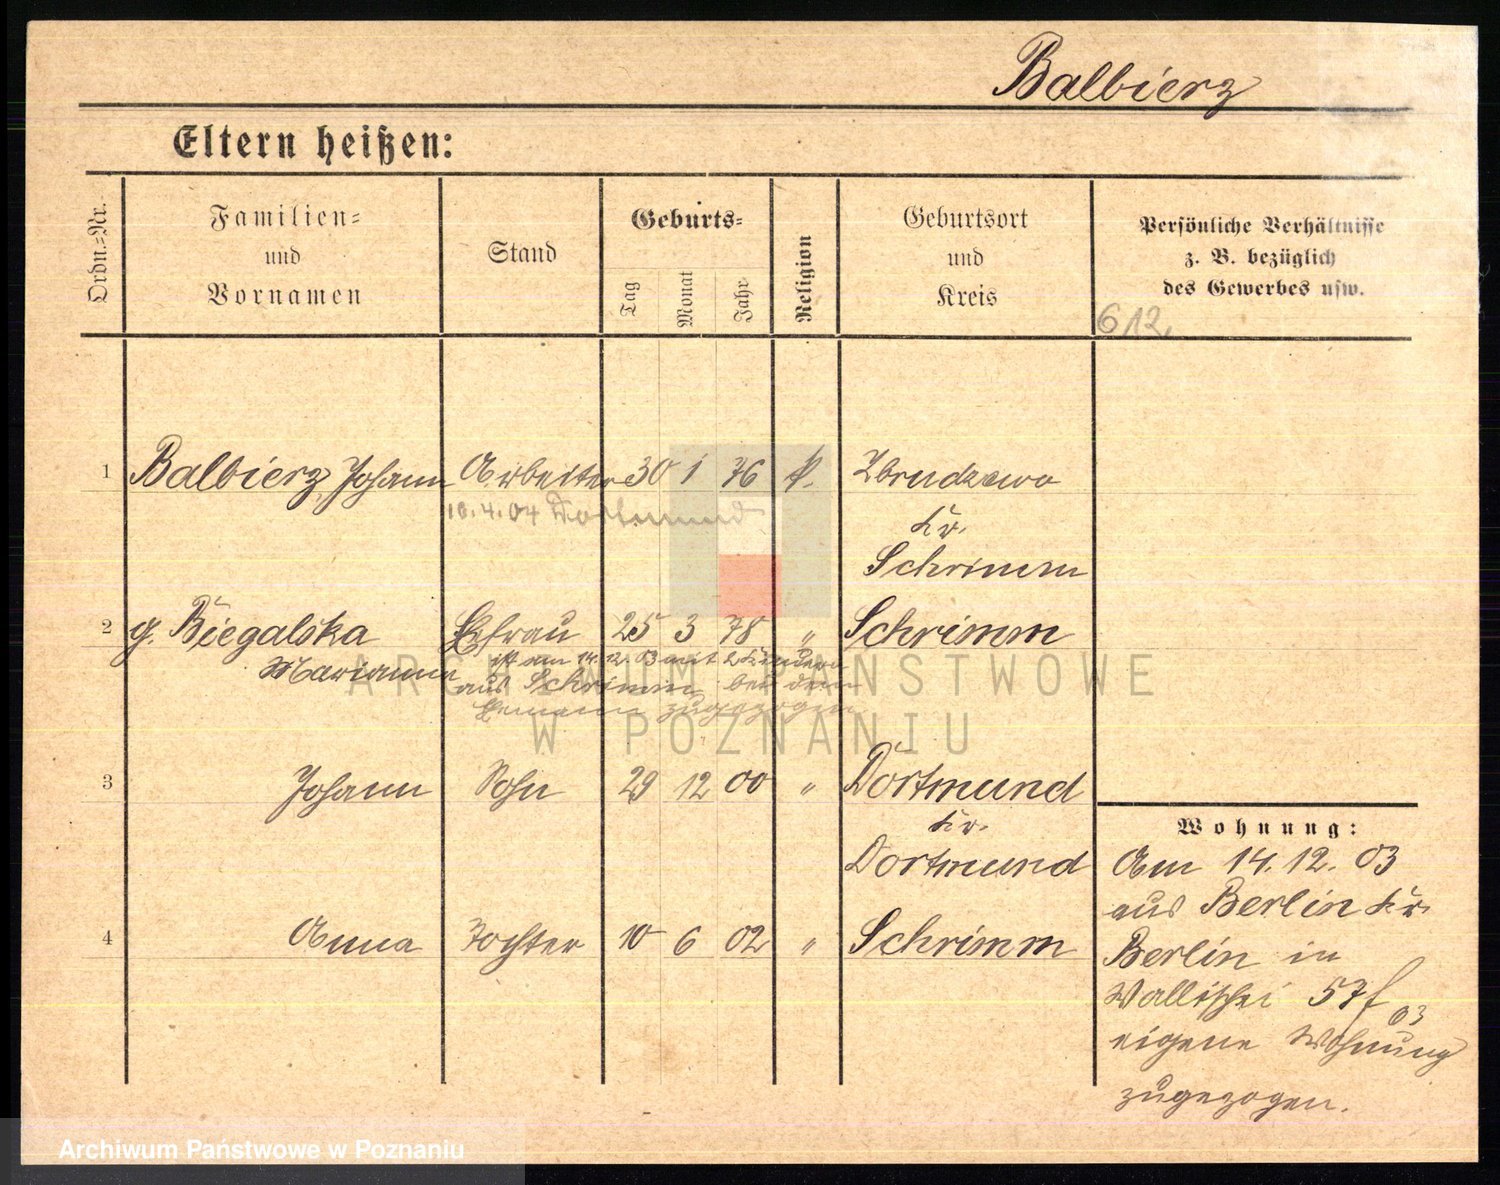 Balbierz
Eltern heißen:
Ordn.=Nr.
Familien=
und
Vornamen
Stand
Geburts=
Tag
Monat
Jahr
Religion
Geburtsort
und
Kreis
Persönliche Verhältnisse
z. B. bezüglich
des Gewerbes usw.
612,
1 Balbierz, Johann Arbeiter 30 1 76 k. Zbrudzewo
10.4.04 Dortmund
Kr.
Schrimm
2 g. Biegalska Efrau 25 3 78 " Schrimm
Marianna
ist am 14.12.03 mit 2 Kindern
aus Schrimm bei dem
Emann zugezogen
3 Johann Sohn 29 12 00 " Dortmund
Kr.
Dortmund
4 Anna Tochter 10 6 02 " Schrimm
Wohnung:
Am 14.12.03
aus Berlin Kr.
Berlin in
Wallischei 57f
03
eigene Wohnung
zugezogen.
ARCHIWUM PAŃSTWOWE
W POZNANIU
Archiwum Państwowe w Poznaniu